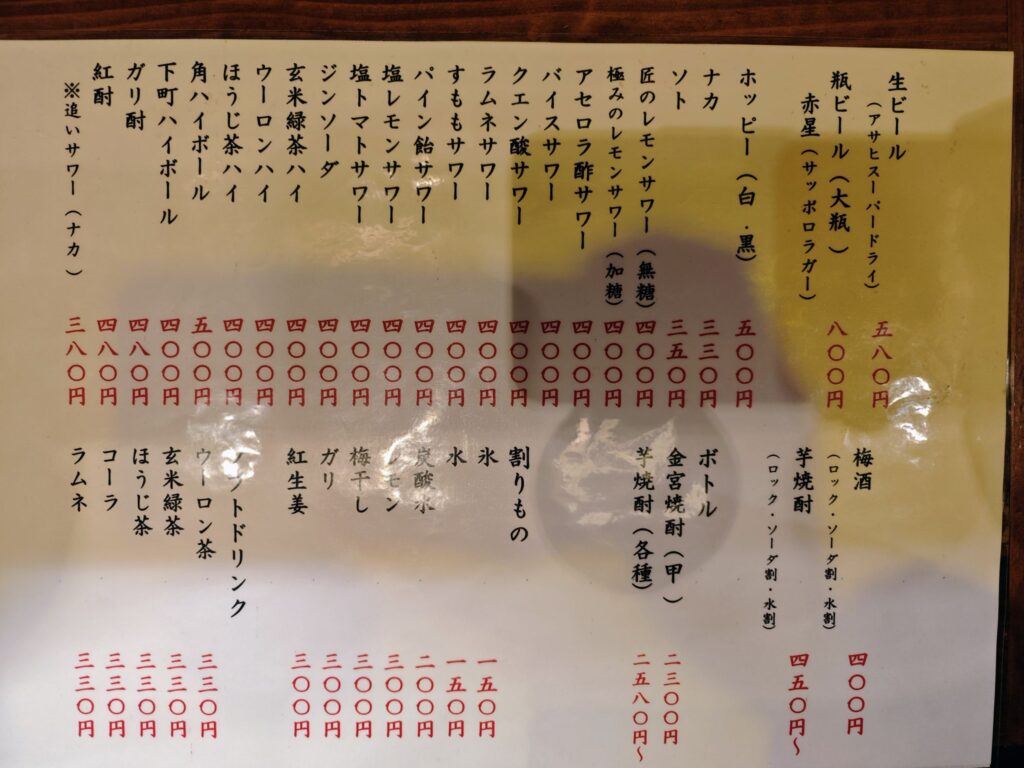 生ビール
(アサヒスーパードライ) 五八〇円
瓶ビール(大瓶) 八〇〇円
赤星(サッポロラガー)
ホッピー(白・黒) 五〇〇円
ナカ 三三〇円
ソト 三五〇円
匠のレモンサワー(無糖) 四〇〇円
極みのレモンサワー(加糖) 四〇〇円
アセロラ酢サワー 四〇〇円
バイスサワー 四〇〇円
クエン酸サワー 四〇〇円
ラムネサワー 四〇〇円
すももサワー 四〇〇円
パイン飴サワー 四〇〇円
塩レモンサワー 四〇〇円
塩トマトサワー 四〇〇円
ジンソーダ 四〇〇円
玄米緑茶ハイ 四〇〇円
ウーロンハイ 四〇〇円
ほうじ茶ハイ 四〇〇円
角ハイボール 五〇〇円
下町ハイボール 四〇〇円
ガリ酎 四八〇円
紅酎 四八〇円
※追いサワー(ナカ) 三八〇円
梅酒 四〇〇円
(ロック・ソーダ割・水割)
芋焼酎 四五〇円〜
(ロック・ソーダ割・水割)
ボトル
金宮焼酎(甲) 二三〇〇円
芋焼酎(各種) 二五八〇円〜
割りもの
氷 一五〇円
水 一五〇円
炭酸水 二〇〇円
レモン 三〇〇円
梅干し 三〇〇円
ガリ 三〇〇円
紅生姜 三〇〇円
ソフトドリンク
ウーロン茶 三三〇円
玄米緑茶 三三〇円
ほうじ茶 三三〇円
コーラ 三三〇円
ラムネ 三三〇円